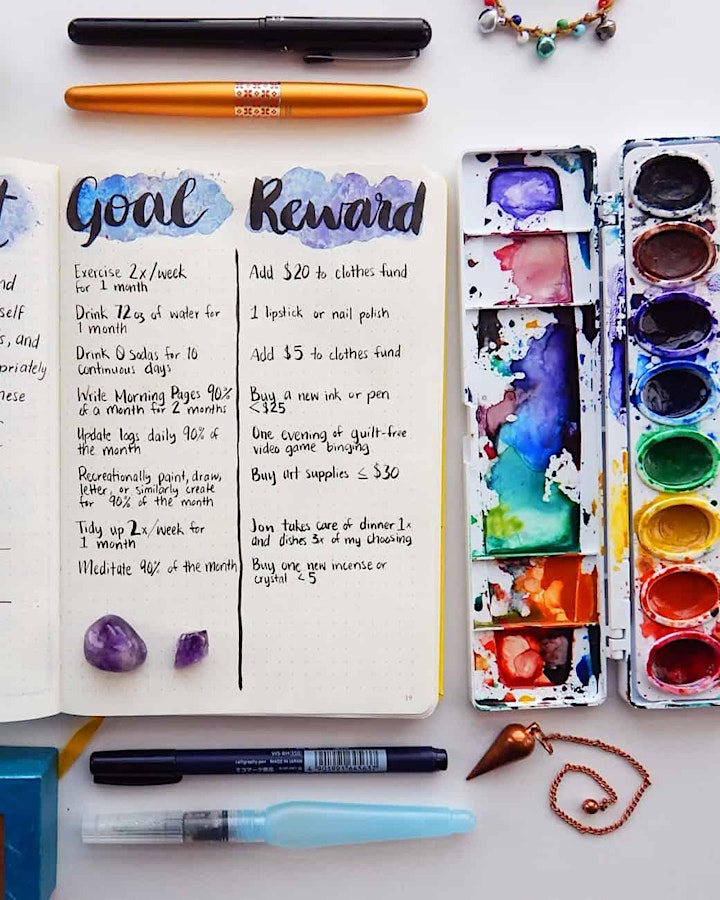 t
nd
self
s, and
opriately
hese
Goal
Reward
Exercise 2x/week
for 1 month
Add $20 to clothes fund
Drink 72 oz of water for
1 month
1 lipstick or nail polish
Drink 0 sodas for 10
continuous days
Add $5 to clothes fund
Write Morning Pages 90%
of a month for 2 months
Buy a new ink or pen
<$25
Update logs daily 90% of
the month
One evening of guilt-free
video game binging
Recreationally paint, draw,
letter, or similarly create
for 90% of the month
Buy art supplies ≤ $30
Tidy up 2x/week for
1 month
Jon takes care of dinner 1x
and dishes 3x of my choosing
Meditate 90% of the month
Buy one new incense or
crystal <5
19